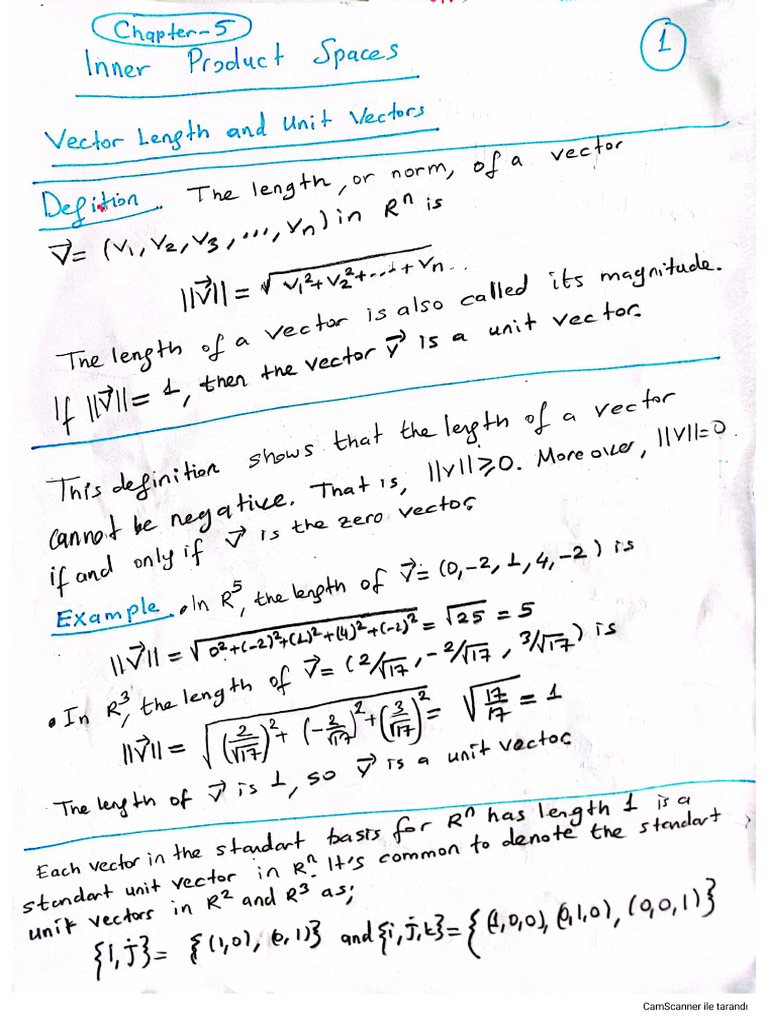 Chapter-5
1
Inner Product Spaces
Vector Length and Unit Vectors
Defition. The length, or norm, of a vector
v⃗= (v1, v2, v3, ..., vn) in Rⁿ is
||v⃗|| = √v1²+v2²+...+vn..
The length of a vector is also called its magnitude.
If ||v⃗||= 1, then the vector v⃗ is a unit vector.
This definition shows that the length of a vector
cannot be negative. That is, ||v||≥0. Moreover, ||v||=0
if and only if v⃗ is the zero vector.
Example. • In R⁵, the length of v⃗= (0,-2,1,4,-2) is
||v⃗|| = √0²+(-2)²+(1)²+(4)²+(-2)² = √25 = 5
• In R³, the length of v⃗= (2/√17, -2/√17, 3/√17) is
||v⃗|| = √(2/√17)²+(-2/√17)²+(3/√17)² = √17/17 = 1
The length of v⃗ is 1, so v⃗ is a unit vector.
Each vector in the standart basis for Rⁿ has length 1 is a
standart unit vector in Rⁿ. It's common to denote the standart
unit vectors in R² and R³ as;
{i,j}= {(1,0), (0,1)} and {i,j,k}= {(1,0,0), (0,1,0), (0,0,1)}
CamScanner ile tarandı